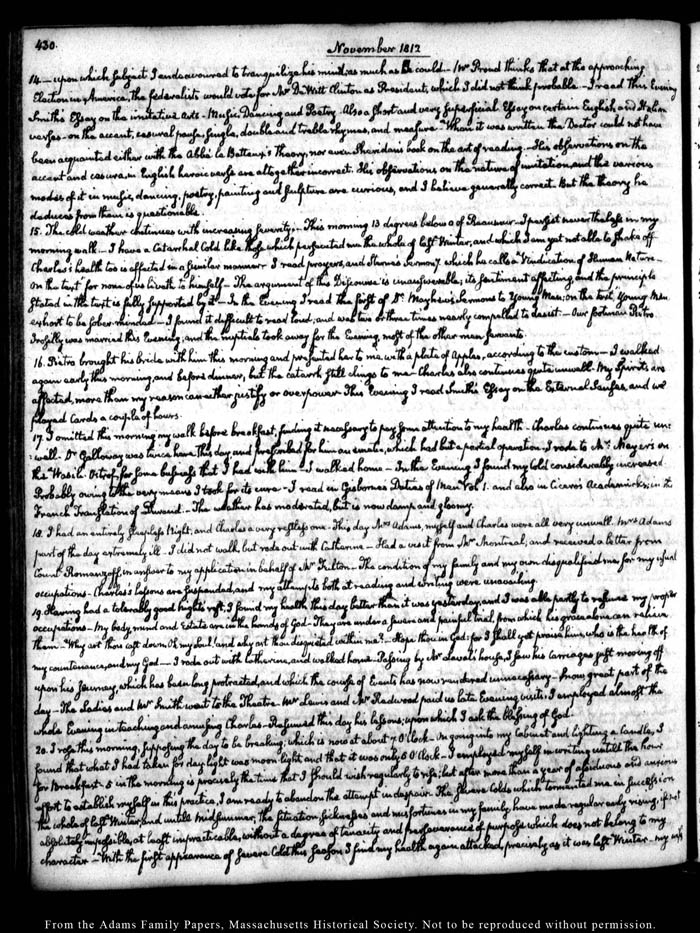 430.
November 1812
14.— upon which subject I endeavoured to tranquilize his mind as much as I could — Mr Proud thinks that at the approaching
Election in America, the federalists would vote for Mr De Witt Clinton as President, which I did not think probable — I read this Evening
Smith's Essay on the imitative arts — Music, Dancing and Poetry — Also a short and very superficial Essay on certain English and Italian
verses — on the accent, cesural pause, single, double and treble rhymes, and measure — When it was written the Doctor could not have
been acquainted either with the Abbé le Batteux's Theory, nor even Sheridan's book on the art of reading — His observations on the
accent and cesura, in English heroic verse are altogether incorrect. His observations on the nature of imitation, and the various
modes of it in music, dancing, poetry, painting and sculpture are curious, and I believe generally correct. But the theory he
deduces from them is questionable.
15. The cold weather continues with increasing severity — This morning 13 degrees below 0 of Reaumur — I persist nevertheless in my
morning walk — I have a Catarrhal Cold like those which persecuted me the whole of last Winter, and which I am yet not able to shake off
Charles's health too is affected in a similar manner — I read prayers, and Sterne's Sermon 7. which he calls a Vindication of Human Nature —
on the text for none of us liveth to himself — The argument of this Discourse is unanswerable; its sentiment affecting, and the principle
stated in the text is fully supported by it — In the Evening I read the first of Dr Mayhew's Sermons to Young Men; on the text, Young Men
exhort to be sober-minded — I found it difficult to read loud, and was two or three times nearly compelled to desist — Our footman Pietro
was married this Evening, and the nuptials took away for the Evening, most of the other man servants.
16. Pietro brought his bride with him this morning and presented her to me with a plate of apples, according to the custom — I walked
again early this morning, and before dinner, but the catarrh still clings to me — Charles also continues quite unwell. My Spirits are
affected, more than my reason can either justify or overpower. This evening I read Smith's Essay on the External Senses, and we
played Cards a couple of hours.
17. I omitted this morning my walk before breakfast, finding it necessary to pay some attention to my health — Charles continues quite un-
:well. Dr Galloway was twice here this day, and prescribed for him an emetic, which had but a partial operation. I rode to Mr Meyer's on
the Wasili-Ostrof, for some business that I had with him — I walked home — In the Evening I found my Cold considerably increased.
Probably owing to the very means I took for its cure — I read in Gisborne's Duties of Man Vol. 1. and also in Cicero's Academicks, in the
French Translation of Durand. — The weather has moderated, but is now damp and gloomy.
18. I had an entirely sleepless Night; and Charles a very restless one — This day Mrs Adams, myself and Charles were all very unwell. Mrs Adams
part of the day extremely ill — I did not walk, but rode out with Catherine — Had a visit from Mr Montreal, and received a letter from
Count Romanzoff, in answer to my application in behalf of Mr Fulton — The condition of my family and my own disqualified me for my usual
occupations — Charles's lessons are suspended, and my attempts both at reading and writing were unavailing.
19. Having had a tolerably good night's rest, I found my health this day better than it was yesterday, and I was able partly to resume my proper
occupations — My body, mind and Estate are in the hands of God — They are under a severe and painful trial, from which his grace alone can relieve
them. "Why art thou cast down, Oh, my Soul! and why art thou disquieted within me? — Hope thou in God; for I shall yet praise him, who is the health of
my countenance, and my God — I rode out with Catherine, and walked home — Passing by Mr Laval's house, I saw his carriages just moving off
upon his Journey, which has been long protracted, and which the course of Events has now rendered unnecessary — Snow great part of the
day — The Ladies and Mr Smith went to the Theatre — Mr Lewis and Mr Redwood paid us late Evening visits. I employed almost the
whole Evening in teaching and amusing Charles — Resumed this day his lessons; upon which I ask the blessing of God.
20. I rose this morning, supposing the day to be breaking, which is now at about 7 O'Clock — On going into my cabinet and lighting a candle, I
found that what I had taken for day light was moon light and that it was only 5 O'Clock — I employed myself in writing until the hour
for Breakfast. 5 in the morning is precisely the time that I should wish regularly to rise; but after more than a year of assiduous and anxious
effort to establish myself in this practice, I am ready to abandon the attempt in despair. The severe Colds which tormented me in succession
the whole of last Winter, and until midsummer, the situation, sicknesses and misfortunes in my family, have made regular early rising, if not
absolutely impossible, at least impracticable, without a degree of tenacity and perseverance of purpose which does not belong to my
character — With the first appearance of severe Cold this season I find my health again attacked, precisely as it was last Winter — my
From the Adams Family Papers, Massachusetts Historical Society. Not to be reproduced without permission.